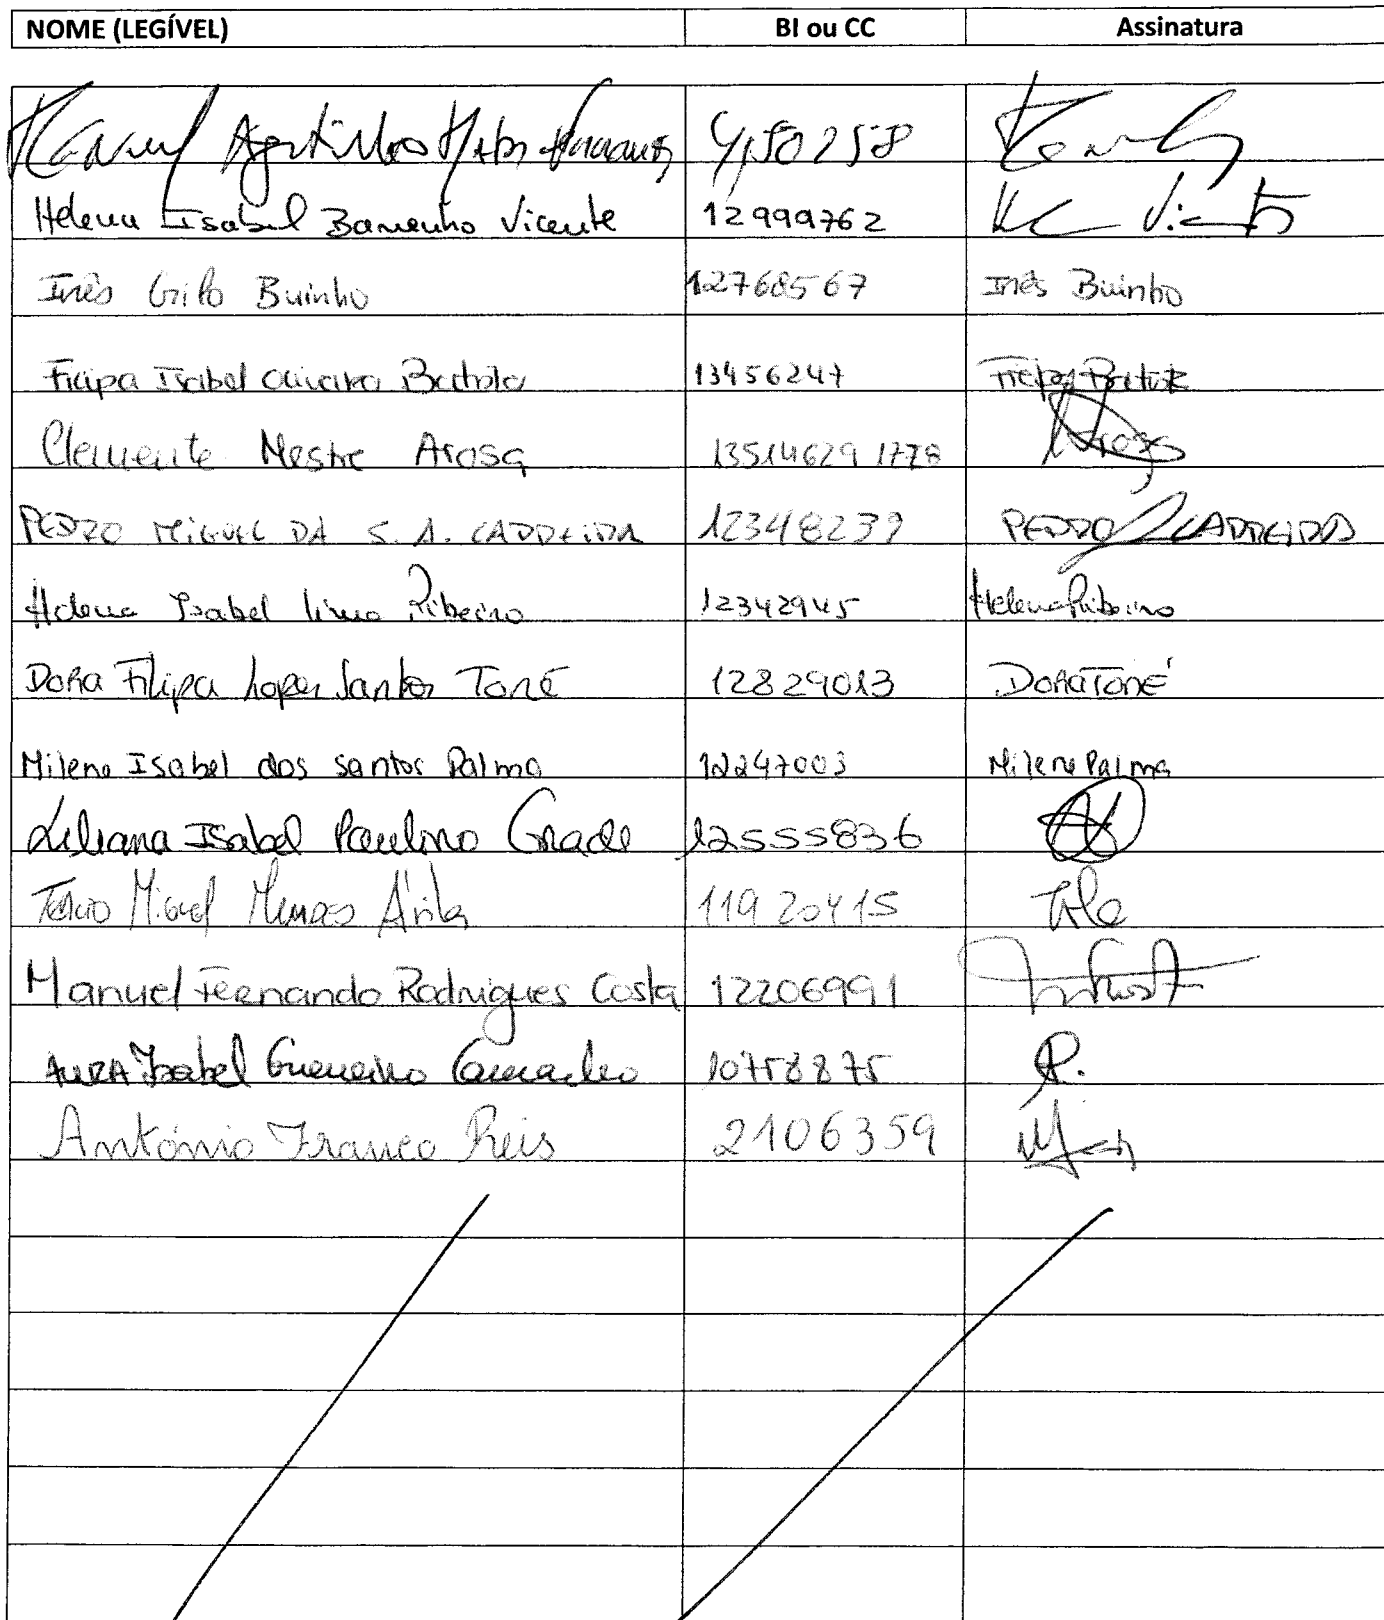 NOME (LEGÍVEL) BI ou CC Assinatura
Manuel
Helena Isabel Barrenho Vicente 12999762
Inês Grilo Buinho 12768567 Inês Buinho
Filipa Isabel Oliveira Batista 13456247
Clemente Mestre Arosa 13514629 1778 Arosa
PEDRO MIGUEL DA S. A. CARREIRA 12348239 PEDRO CARREIRA
Helena Isabel Lima Ribeiro 12342945 Helena Ribeiro
Dora Filipa Lopes Santos Toné 12829013 Dora Toné
Milene Isabel dos Santos Palma 12247003 Milene Palma
Liliana Isabel Paulino Grade 12555836
Miguel 11920415
Manuel Fernando Rodrigues Costa 12206991
Aura Isabel Guerreiro Camacho 10758875
António Franco Reis 2106359